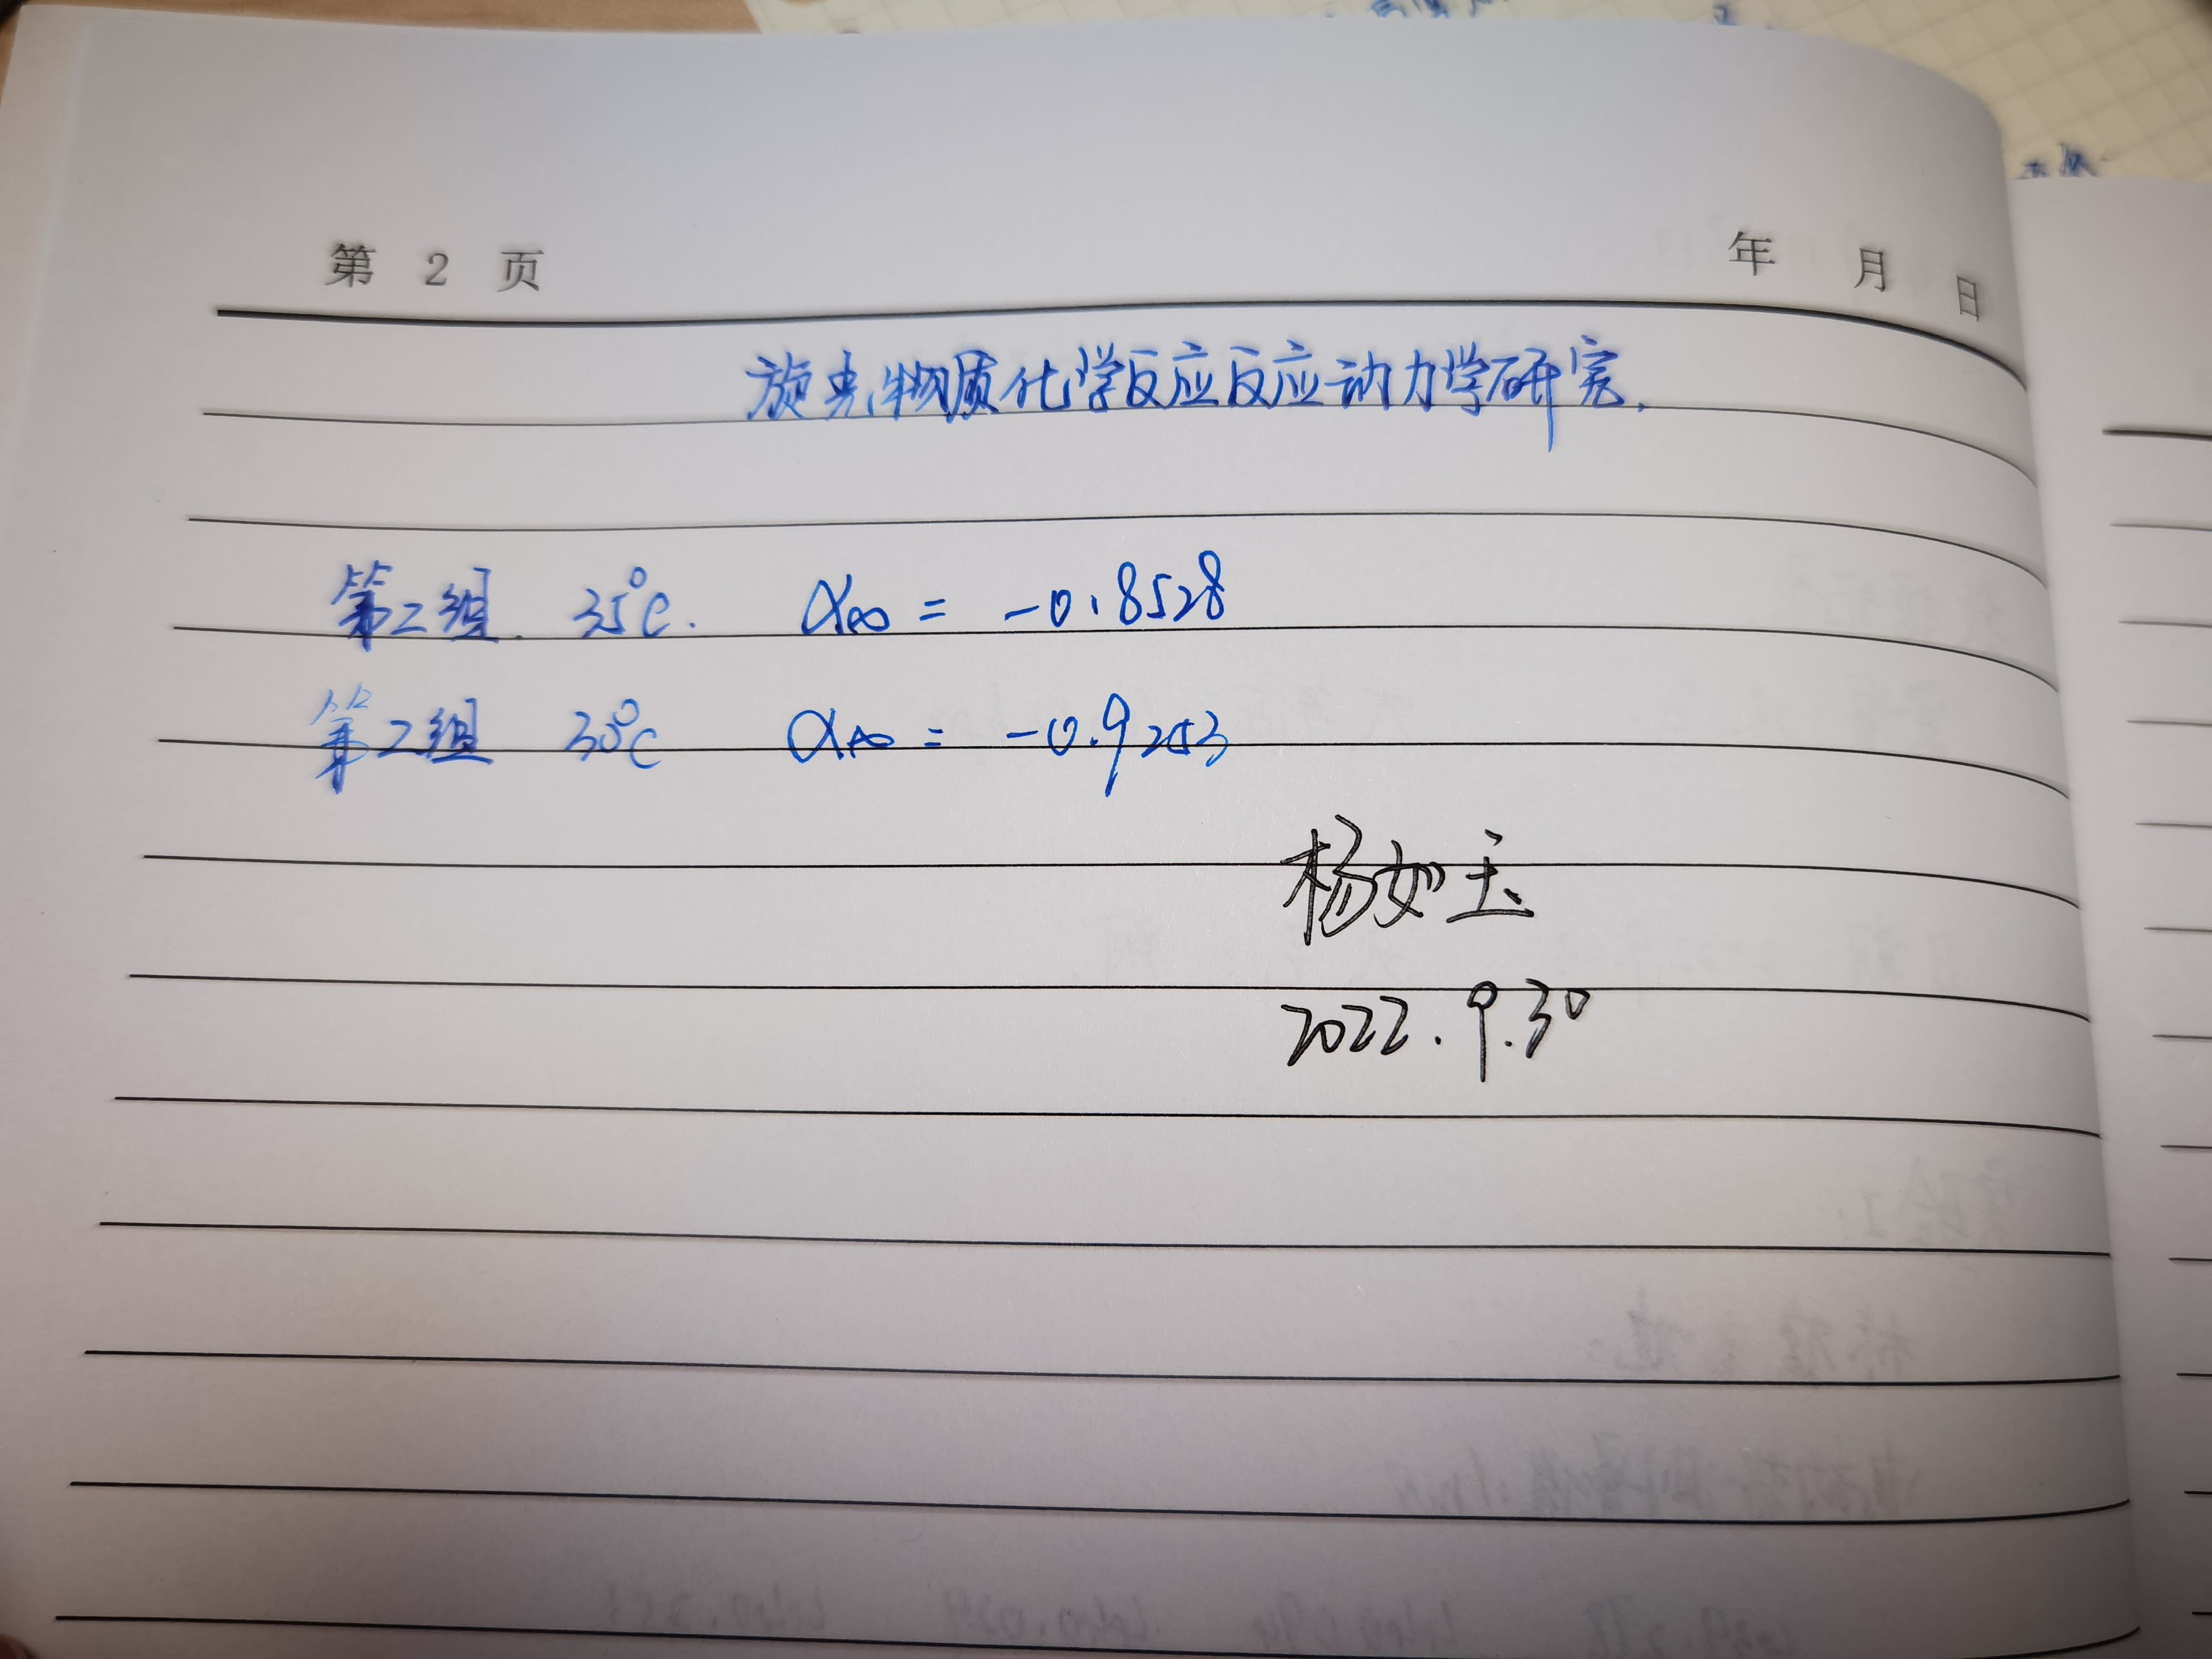 第 2 页 年 月 日
旋光物质化学反应反应动力学研究.
第二组. 35°C. α∞ = -0.8528
第二组 30°C α∞ = -0.9253
杨如玉
2022.9.30